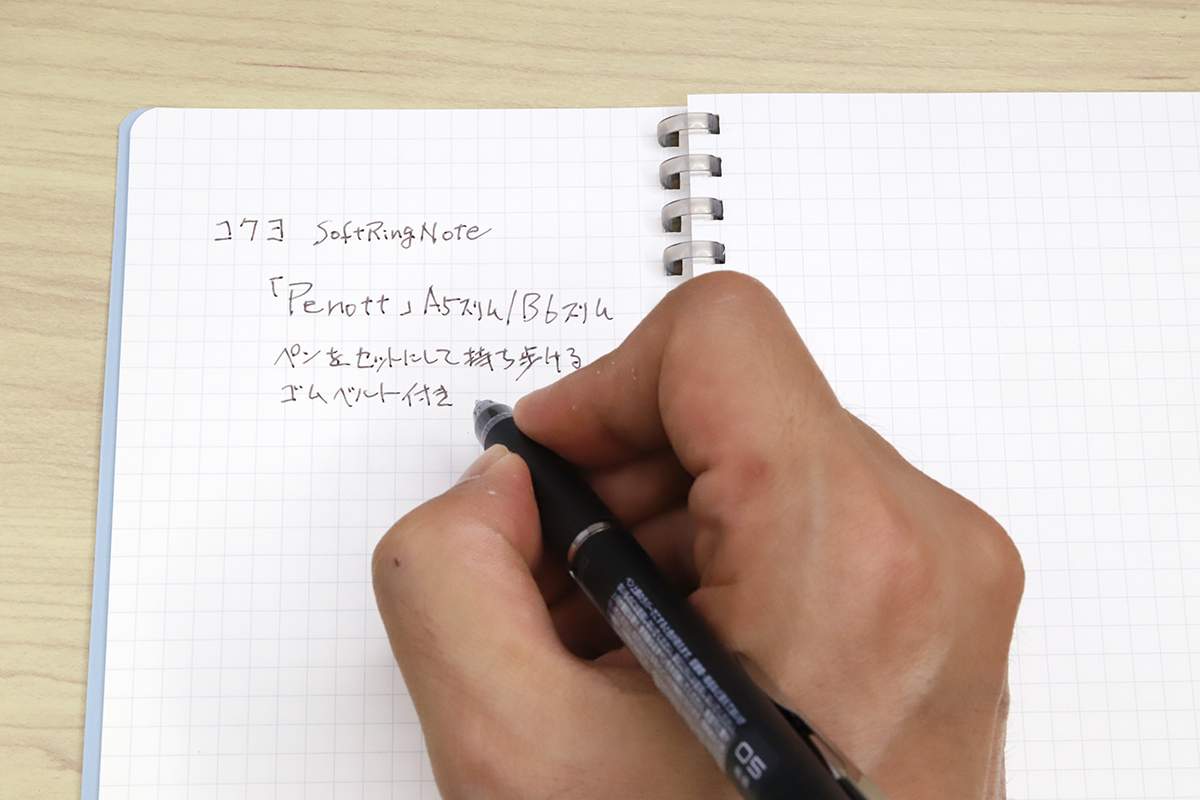 コクヨ SoftRingNote
「Penott」A5スリム/B6スリム
ペンをセットにして持ち歩ける
ゴムベルト付き
05